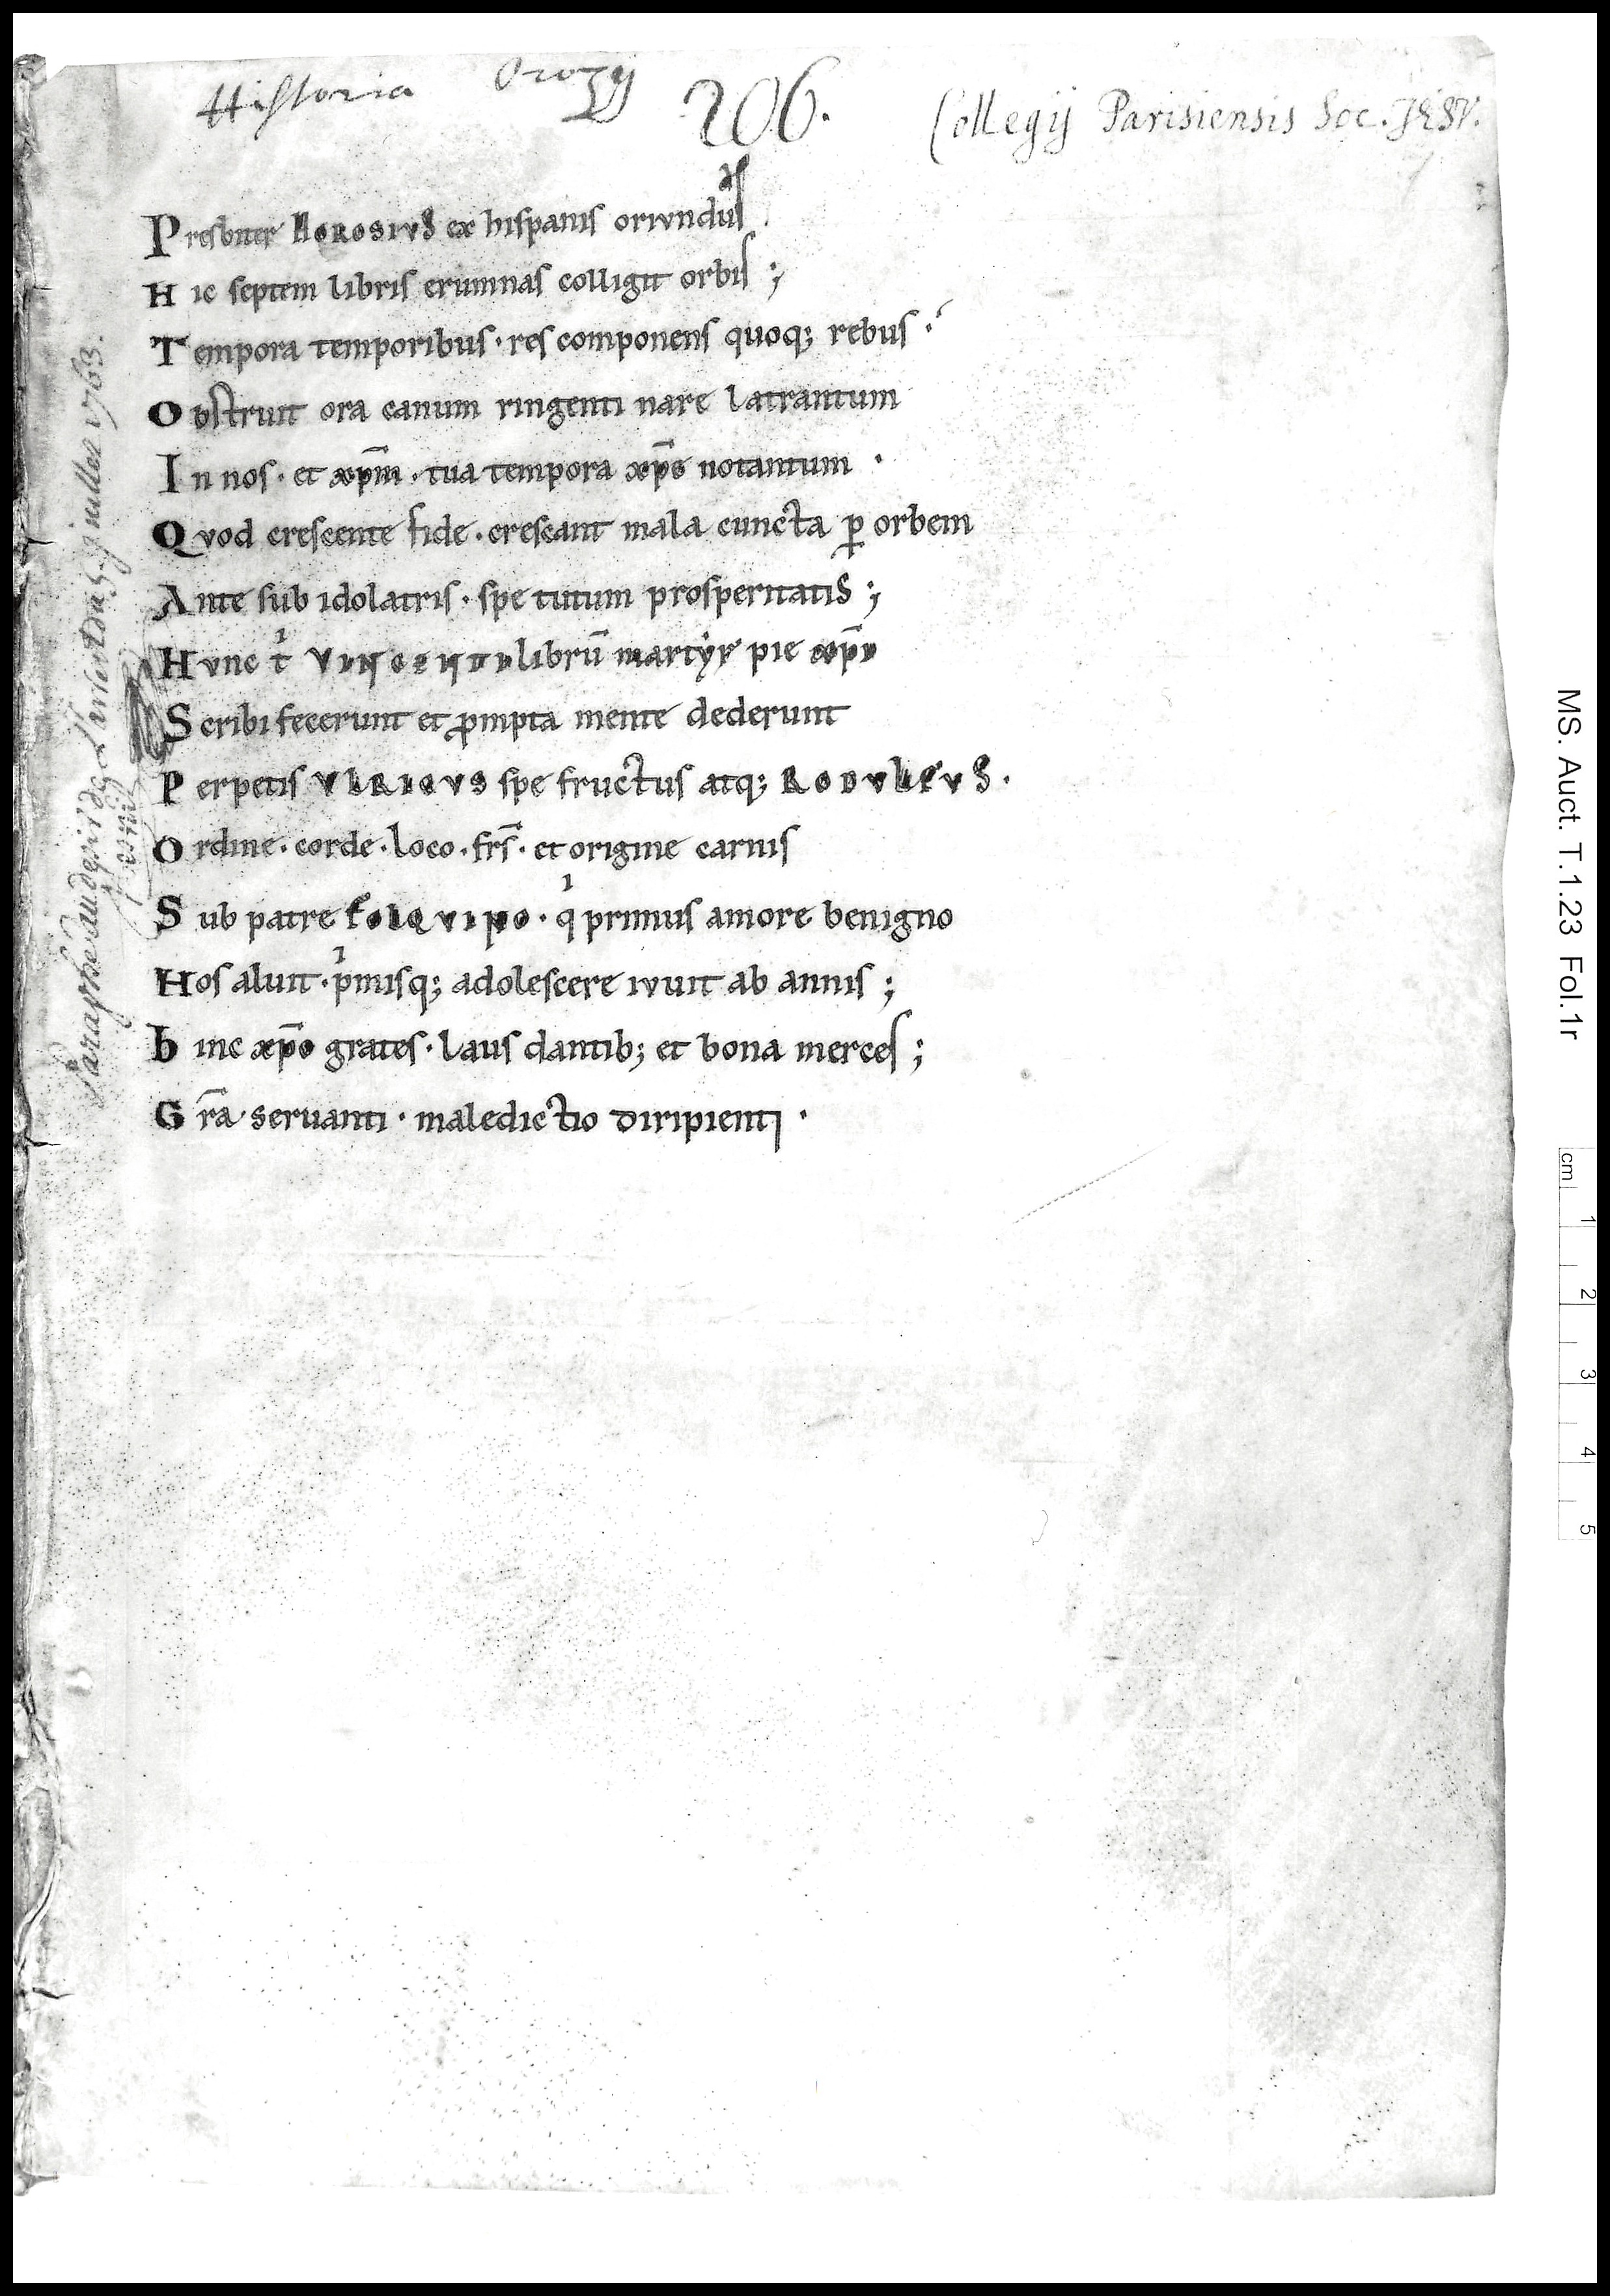 Historia Orozÿ 206. Collegij Parisiensis Soc. JESV.
Presbiter HOROSIVS ex hispanis orivnduſ
Hic septem libris erumnas colligit orbiſ ;
Tempora temporibus · res componens quoq; rebus ·
Obstruit ora canum ringenti nare latrantum
In nos · et xp̄m · tua tempora xp̄e notantum ·
Qvod crescente fide · crescant mala cuncta ꝑ orbem
Ante sub idolatris · spe tutum prosperitatis ;
Hvnc tⁱ VINCENTI librū martẏr pie xp̄i
Scribi fecerunt et ꝓmpta mente dederunt
Perpetis VLRICVS spe fructus atq; RODVLFVS ·
Ordine · corde · loco · fr̄s · et origine carnis
Sub patre FOLQVINO · qⁱ primus amore benigno
Hos aluit · pⁱmisq; adolescere ivuit ab annis ;
hinc xp̄o grates · laus dantib; et bona merces ;
Gr̄a seruanti · maledictio diripienti ·
Paraphé au desir de 5. juillet 1763.
MS. Auct. T.1.23 Fol.1r
cm 1 2 3 4 5